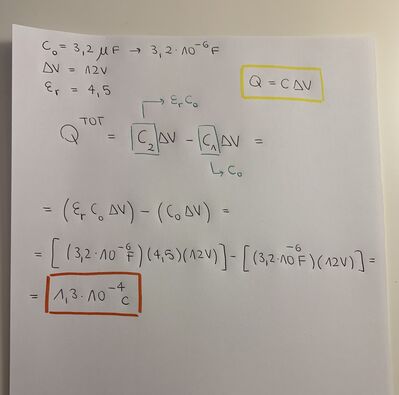 C₀ = 3,2 μF → 3,2·10⁻⁶ F
ΔV = 12V
εᵣ = 4,5
Q = C ΔV
→ εᵣ C₀
Qᵀᴼᵀ = C₂ ΔV − C₁ ΔV =
↳ C₀
= (εᵣ C₀ ΔV) − (C₀ ΔV) =
= [(3,2·10⁻⁶ F)(4,5)(12V)] − [(3,2·10⁻⁶ F)(12V)] =
= 1,3·10⁻⁴ C